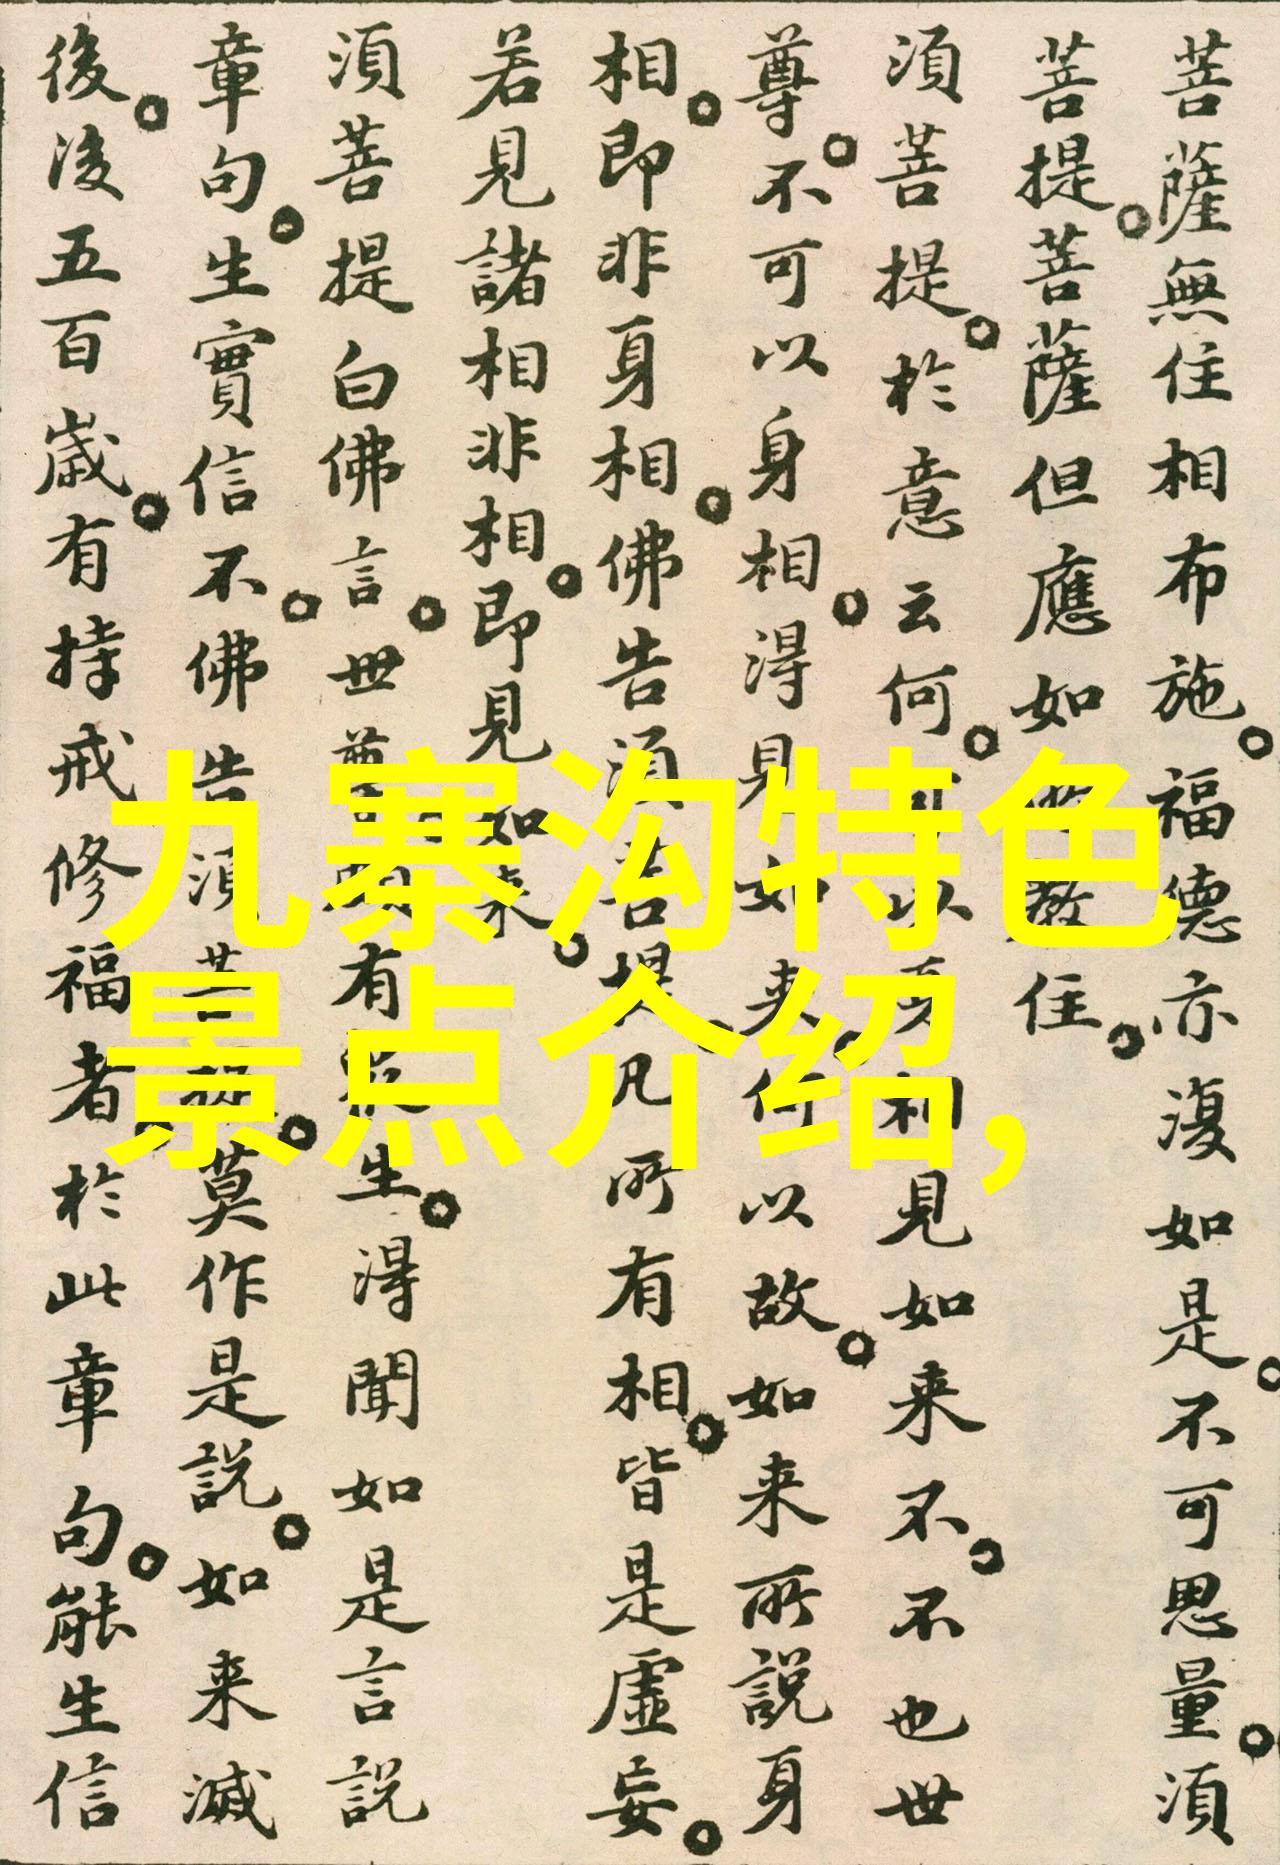 菩薩無住相布施福德亦復如是不可思量須
菩提菩薩但應如教住
須菩提於意云何以身相見如来不不也世
尊不可以身相得見如来何以故如来所說身
相即非身相佛告須菩提凡所有相皆是虛妄
若見諸相非相即見如来
須菩提白佛言世尊有生得聞如是言說
章句生實信不佛告須菩提莫作是說如来滅
後後五百歲有持戒修福者於此章句能生信
九寨沟特色
景点介绍,